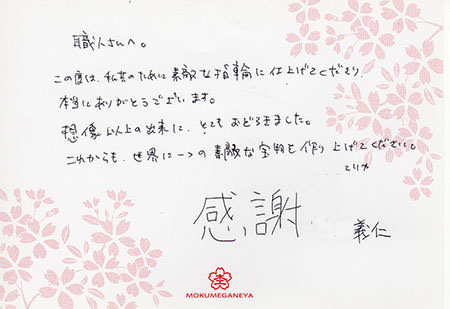 職人さんへ。
この度は、私共のために素敵な指輪に仕上げてくださり、
本当にありがとうございます。
想像以上の出来に、とてもおどろきました。
これからも、世界に一つの素敵な宝物を作り上げてください。
感謝
義仁
杢
MOKUMEGANEYA